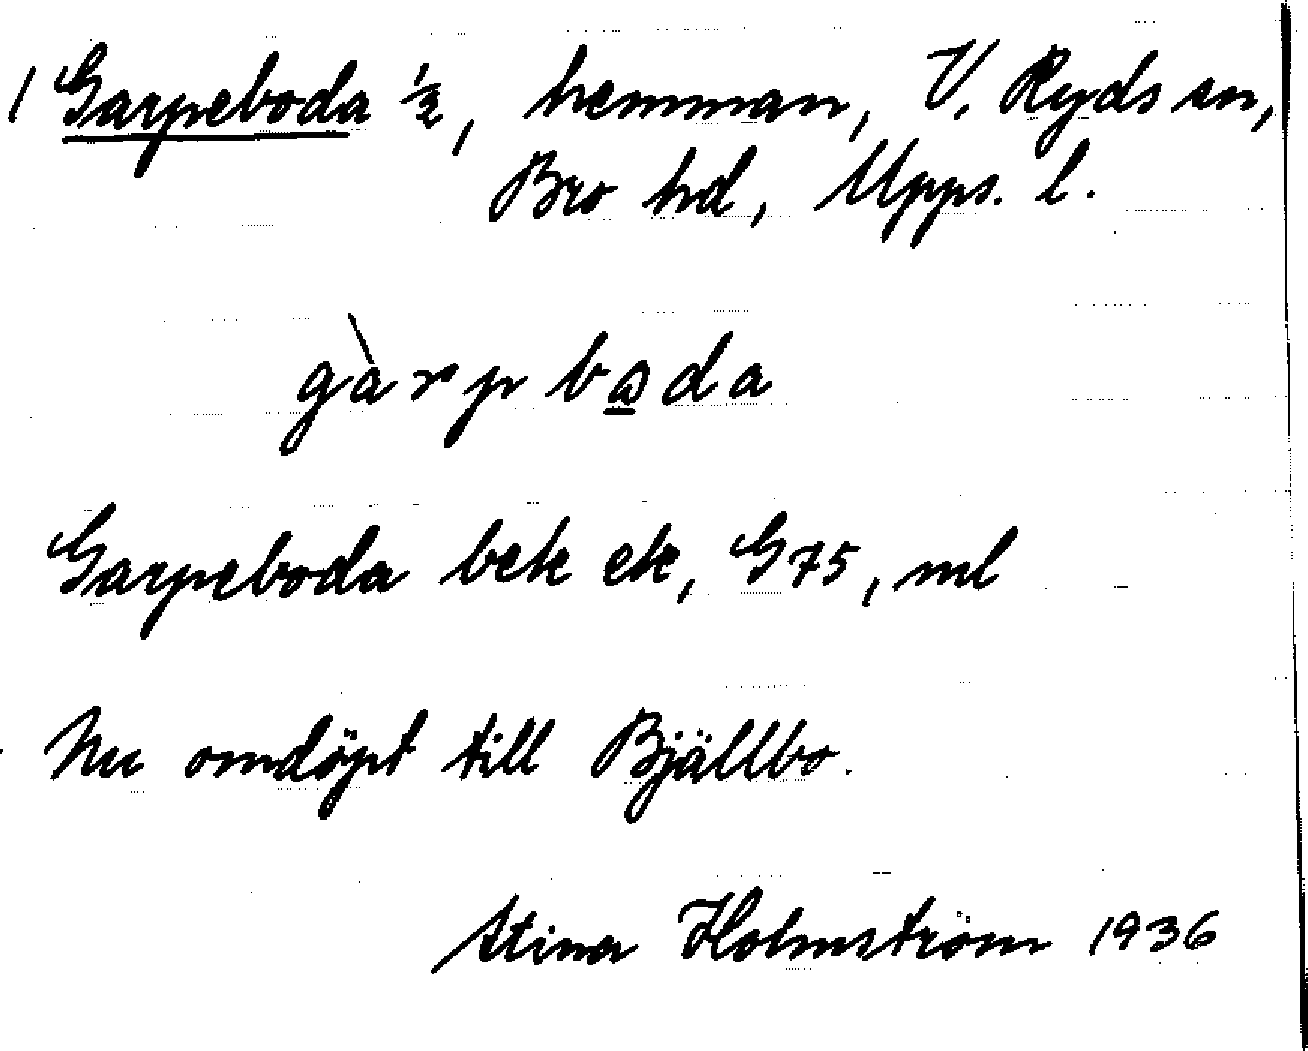 / Garpeboda ½, hemman, V. Ryds sn,
Bro hd, Upps. l.
gàrpbo̲da
Garpeboda bek ek, G75, ml
Nu omdöpt till Bjällbo.
Stina Holmström 1936